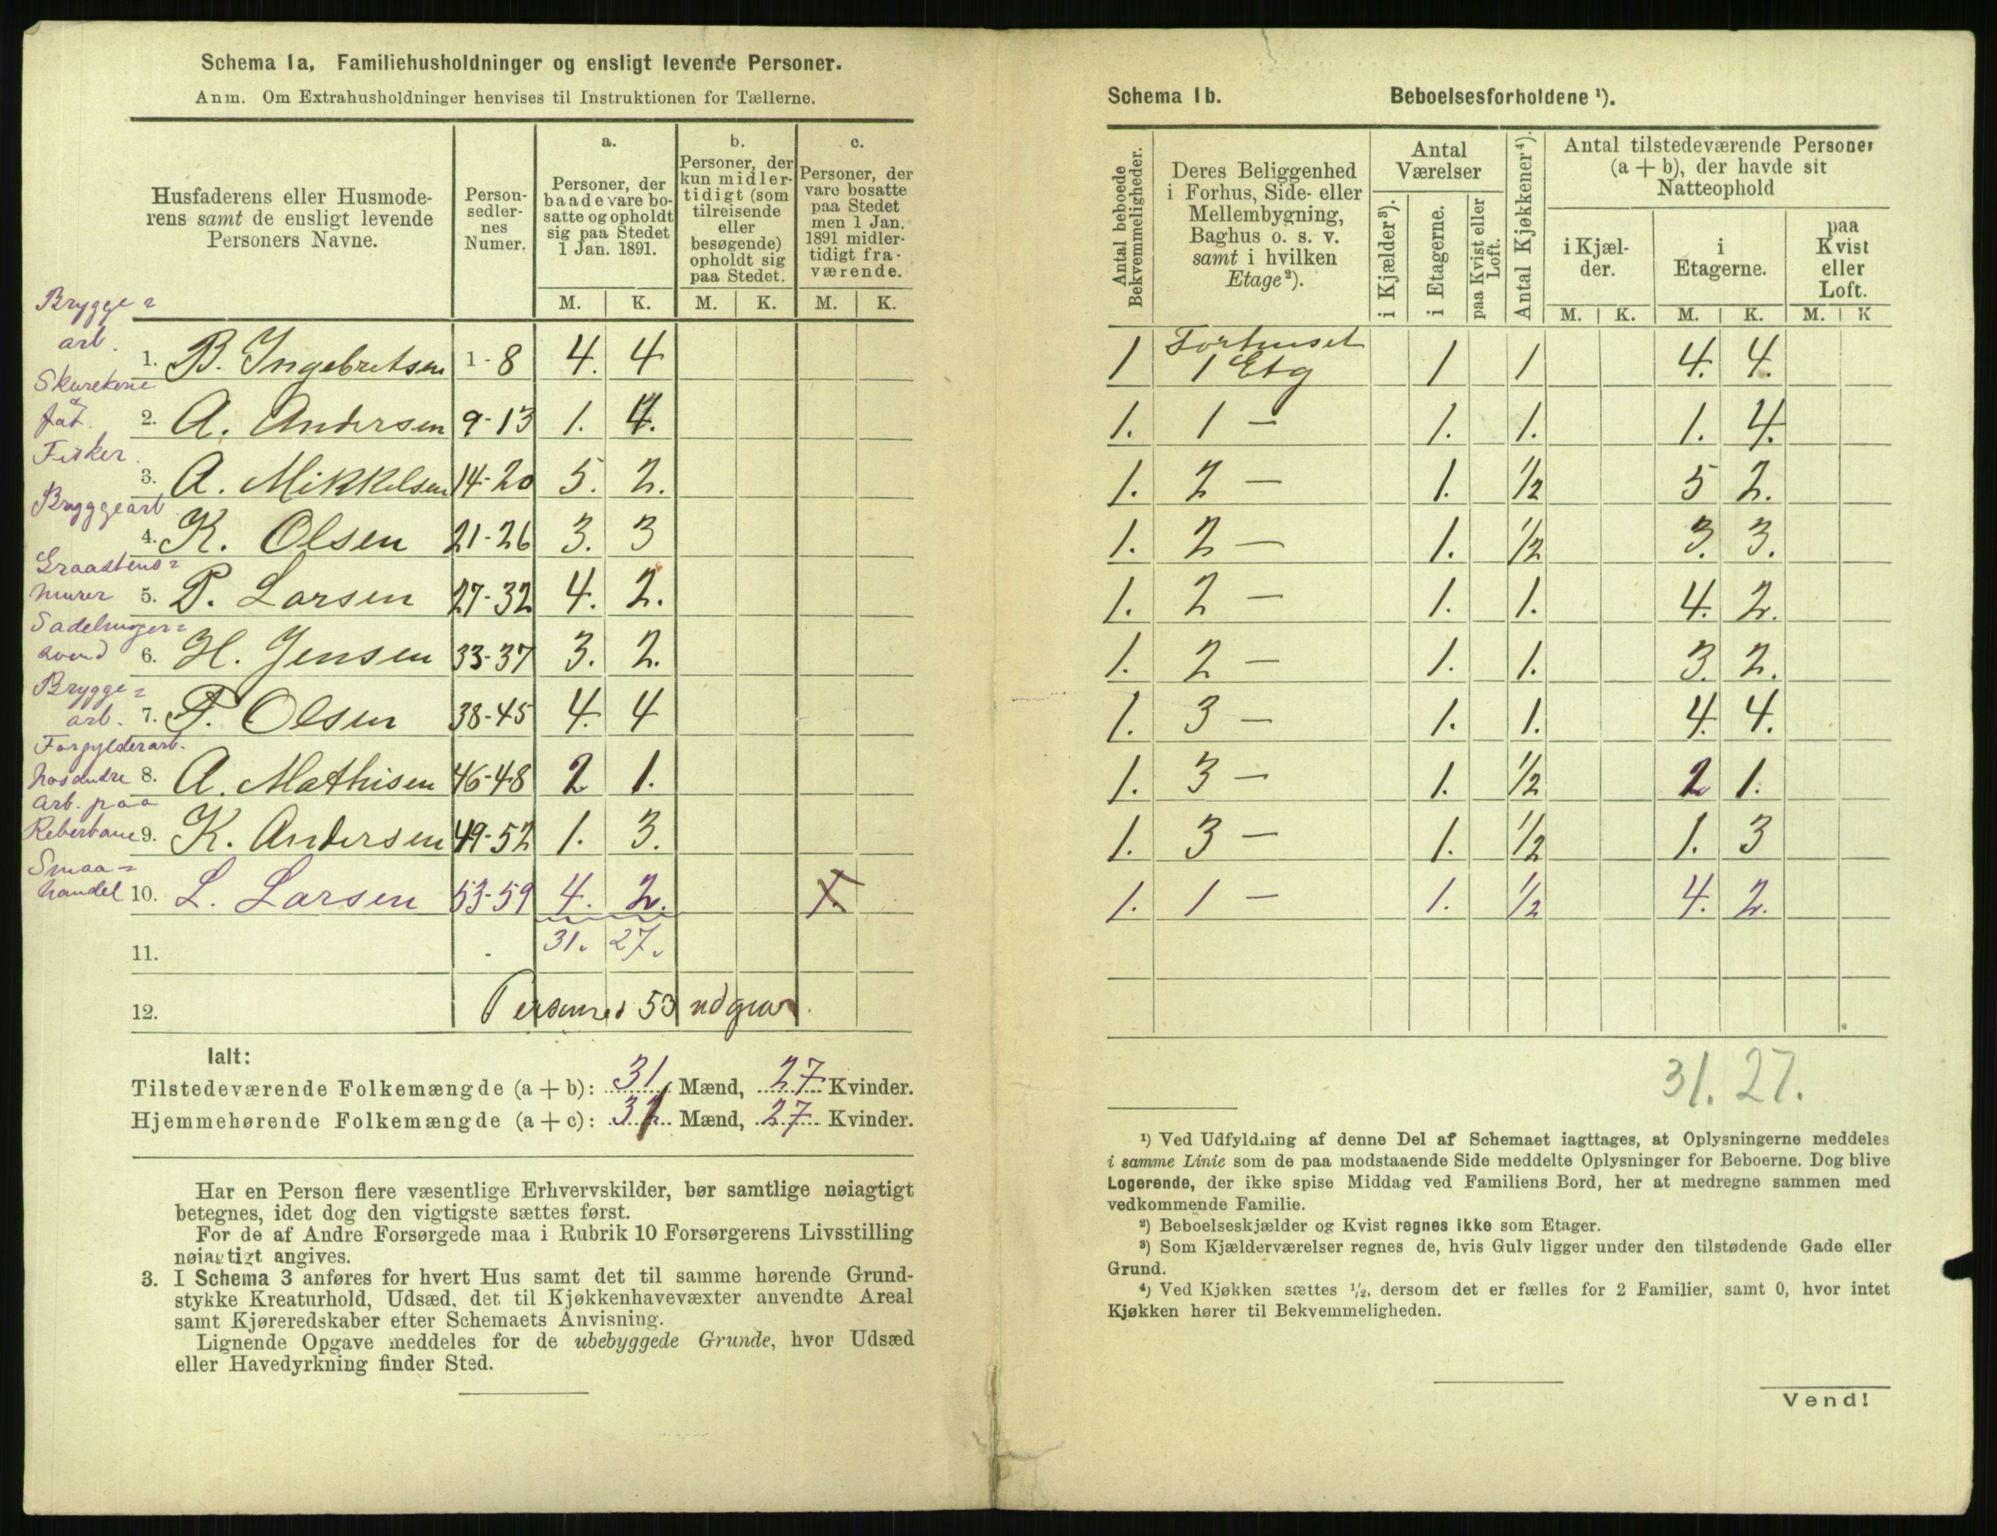 Schema 1a, Familiehusholdninger og ensligt levende Personer.
Anm. Om Extrahusholdninger henvises til Instruktionen for Tællerne.
Husfaderens eller Husmoderens samt de ensligt levende Personers Navne.
Person-sedlernes Numer.
a. Personer, der baade vare bosatte og opholdt sig paa Stedet 1 Jan. 1891.
b. Personer, der kun midlertidigt (som tilreisende eller besøgende) opholdt sig paa Stedet.
c. Personer, der vare bosatte paa Stedet men 1 Jan. 1891 midlertidigt fraværende.
M. K. M. K. M. K.
Brygge=
arb. 1. B. Ingebretsen 1-8 4. 4
2. A. Andersen 9-13 1. 4.
Fisker 3. A. Mikkelsen 14-20 5. 2.
Bryggearb 4. K. Olsen 21-26 3. 3
Graastens=
murer 5. P. Larsen 27-32 4. 2.
Sadelmager=
svend 6. H. Jensen 33-37 3. 2.
Brygge=
arb. 7. P. Olsen 38-45 4. 4
Forgylderarb.
hos andre 8. A. Mathisen 46-48 2 1.
Arb. paa
Reberbane 9. K. Andersen 49-52 1. 3.
Smaa=
handel 10. L. Larsen 53-59 4. 2.
11. 31. 27.
12. Personsed 53 udgaar.
Ialt:
Tilstedeværende Folkemængde (a + b): 31 Mænd, 27 Kvinder.
Hjemmehørende Folkemængde (a + c): 31 Mænd, 27 Kvinder.
Har en Person flere væsentlige Erhvervskilder, bør samtlige nøiagtigt
betegnes, idet dog den vigtigste sættes først.
For de af Andre Forsørgede maa i Rubrik 10 Forsørgerens Livsstilling
nøiagtigt angives.
3. I Schema 3 anføres for hvert Hus samt det til samme hørende Grund-
stykke Kreaturhold, Udsæd, det til Kjøkkenhavevæxter anvendte Areal
samt Kjøreredskaber efter Schemaets Anvisning.
Lignende Opgave meddeles for de ubebyggede Grunde, hvor Udsæd
eller Havedyrkning finder Sted.
Schema 1b. Beboelsesforholdene ¹).
Antal beboede Bekvemmeligheder.
Deres Beliggenhed i Forhus, Side- eller Mellembygning, Baghus o. s. v. samt i hvilken Etage²).
Antal Værelser
i Kjælder³).
i Etagerne.
paa Kvist eller Loft.
Antal Kjøkkener⁴).
Antal tilstedeværende Personer (a + b), der havde sit Natteophold
i Kjælder.
i Etagerne.
paa Kvist eller Loft.
M. K. M. K. M. K
1 Forhuset 1 Etg 1 1 4. 4.
1. 1 — 1. 1. 1. 4.
1. 2 — 1. 1/2 5 2.
1. 2 — 1. 1/2 3. 3.
1. 2 — 1. 1. 4. 2.
1. 2 — 1. 1. 3. 2.
1. 3 — 1. 1. 4. 4.
1. 3 — 1. 1/2 2 1.
1. 3 — 1. 1/2 1. 3
1. 1 — 1. 1/2 4. 2.
31. 27.
¹) Ved Udfyldning af denne Del af Schemaet iagttages, at Oplysningerne meddeles
i samme Linie som de paa modstaaende Side meddelte Oplysninger for Beboerne. Dog blive
Logerende, der ikke spise Middag ved Familiens Bord, her at medregne sammen med
vedkommende Familie.
²) Beboelseskjælder og Kvist regnes ikke som Etager.
³) Som Kjælderværelser regnes de, hvis Gulv ligger under den tilstødende Gade eller
Grund.
⁴) Ved Kjøkken sættes ½, dersom det er fælles for 2 Familier, samt 0, hvor intet
Kjøkken hører til Bekvemmeligheden.
Vend!